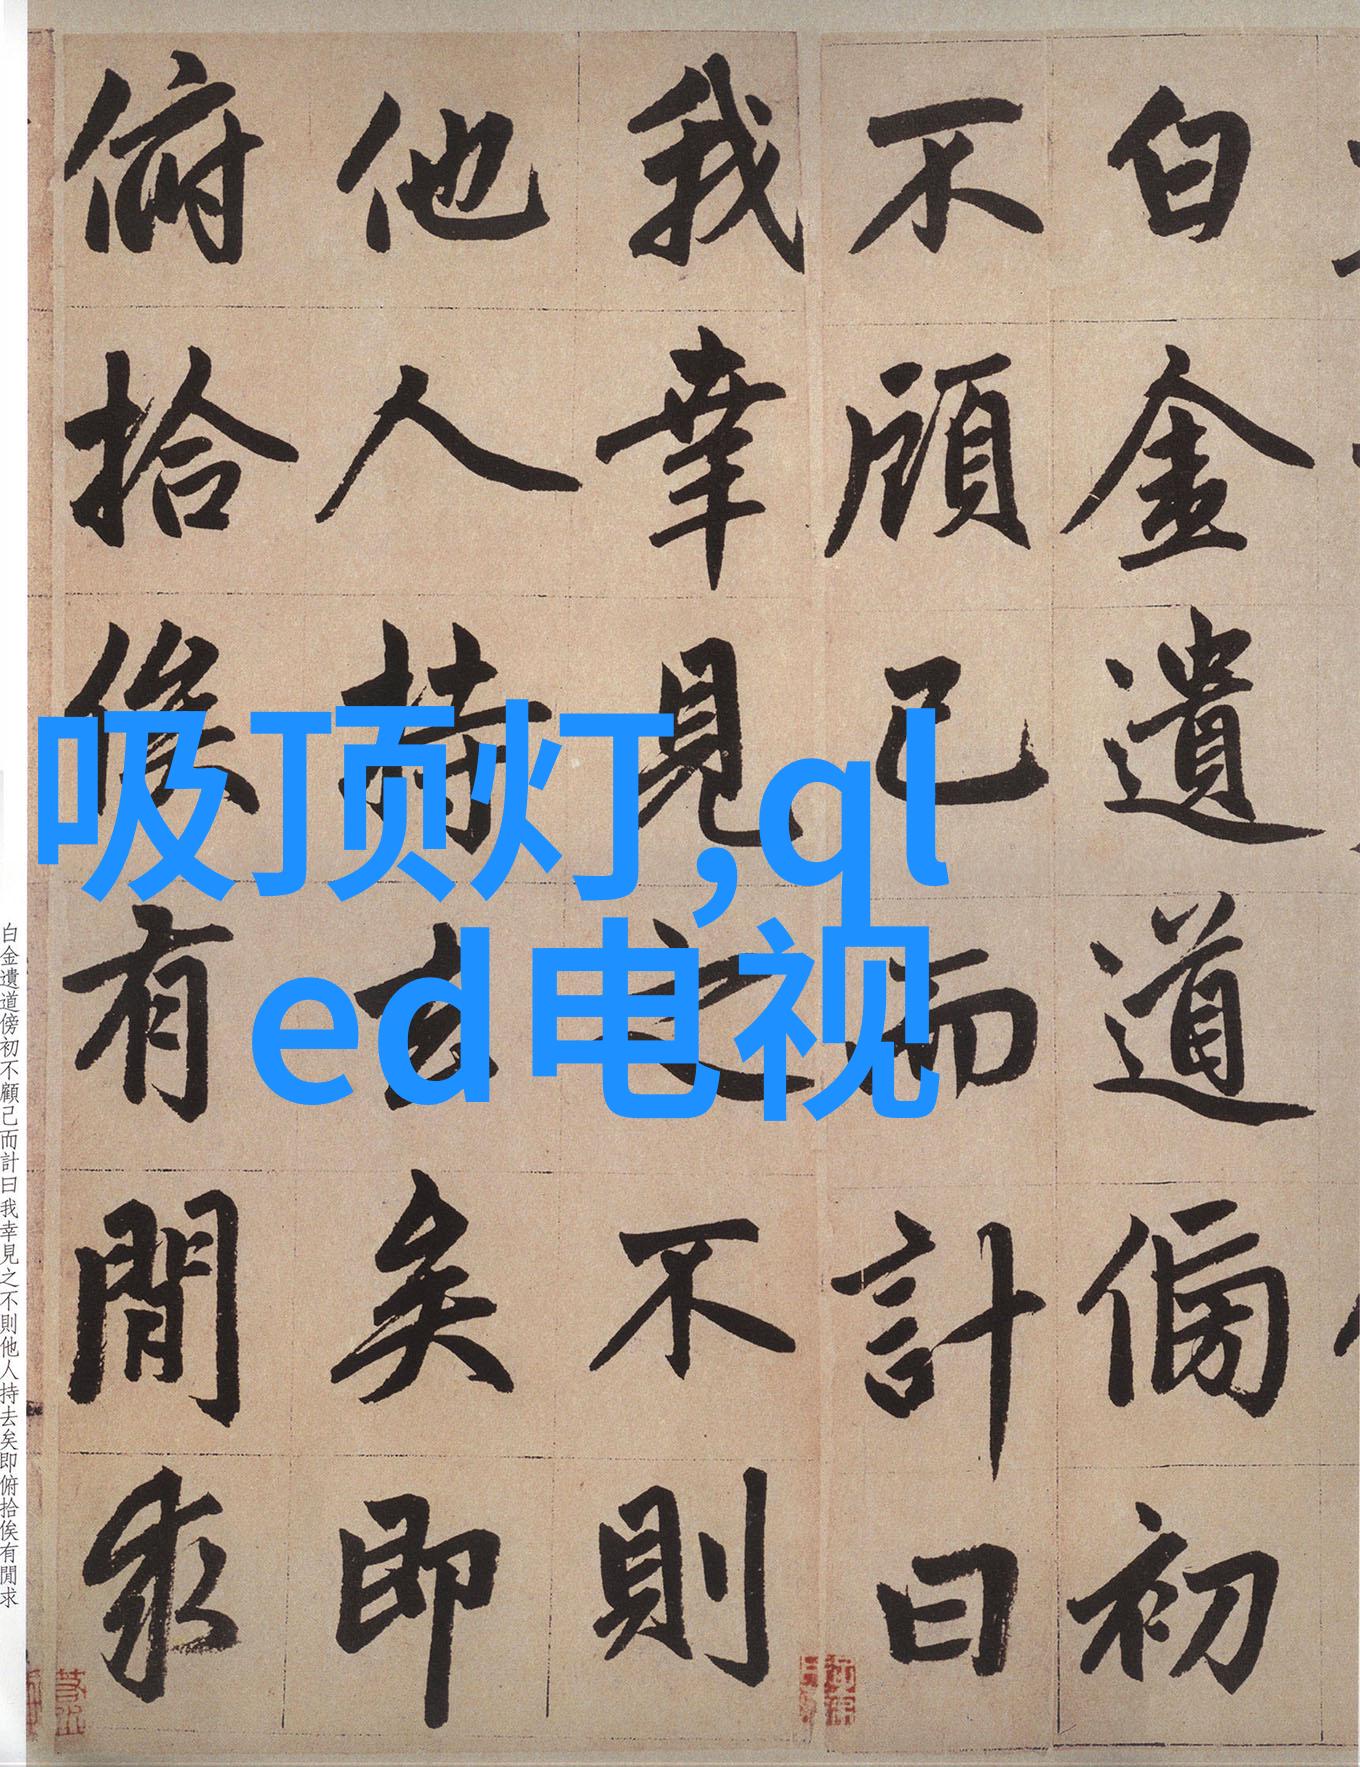 白金遺道傍初
不顧己而計曰
我幸見之不則
他人持去矣即
俯拾俟有閒求
吸顶灯,ql
ed电视
白金遺道傍初不顧己而計曰我幸見之不則他人持去矣即俯拾俟有閒求